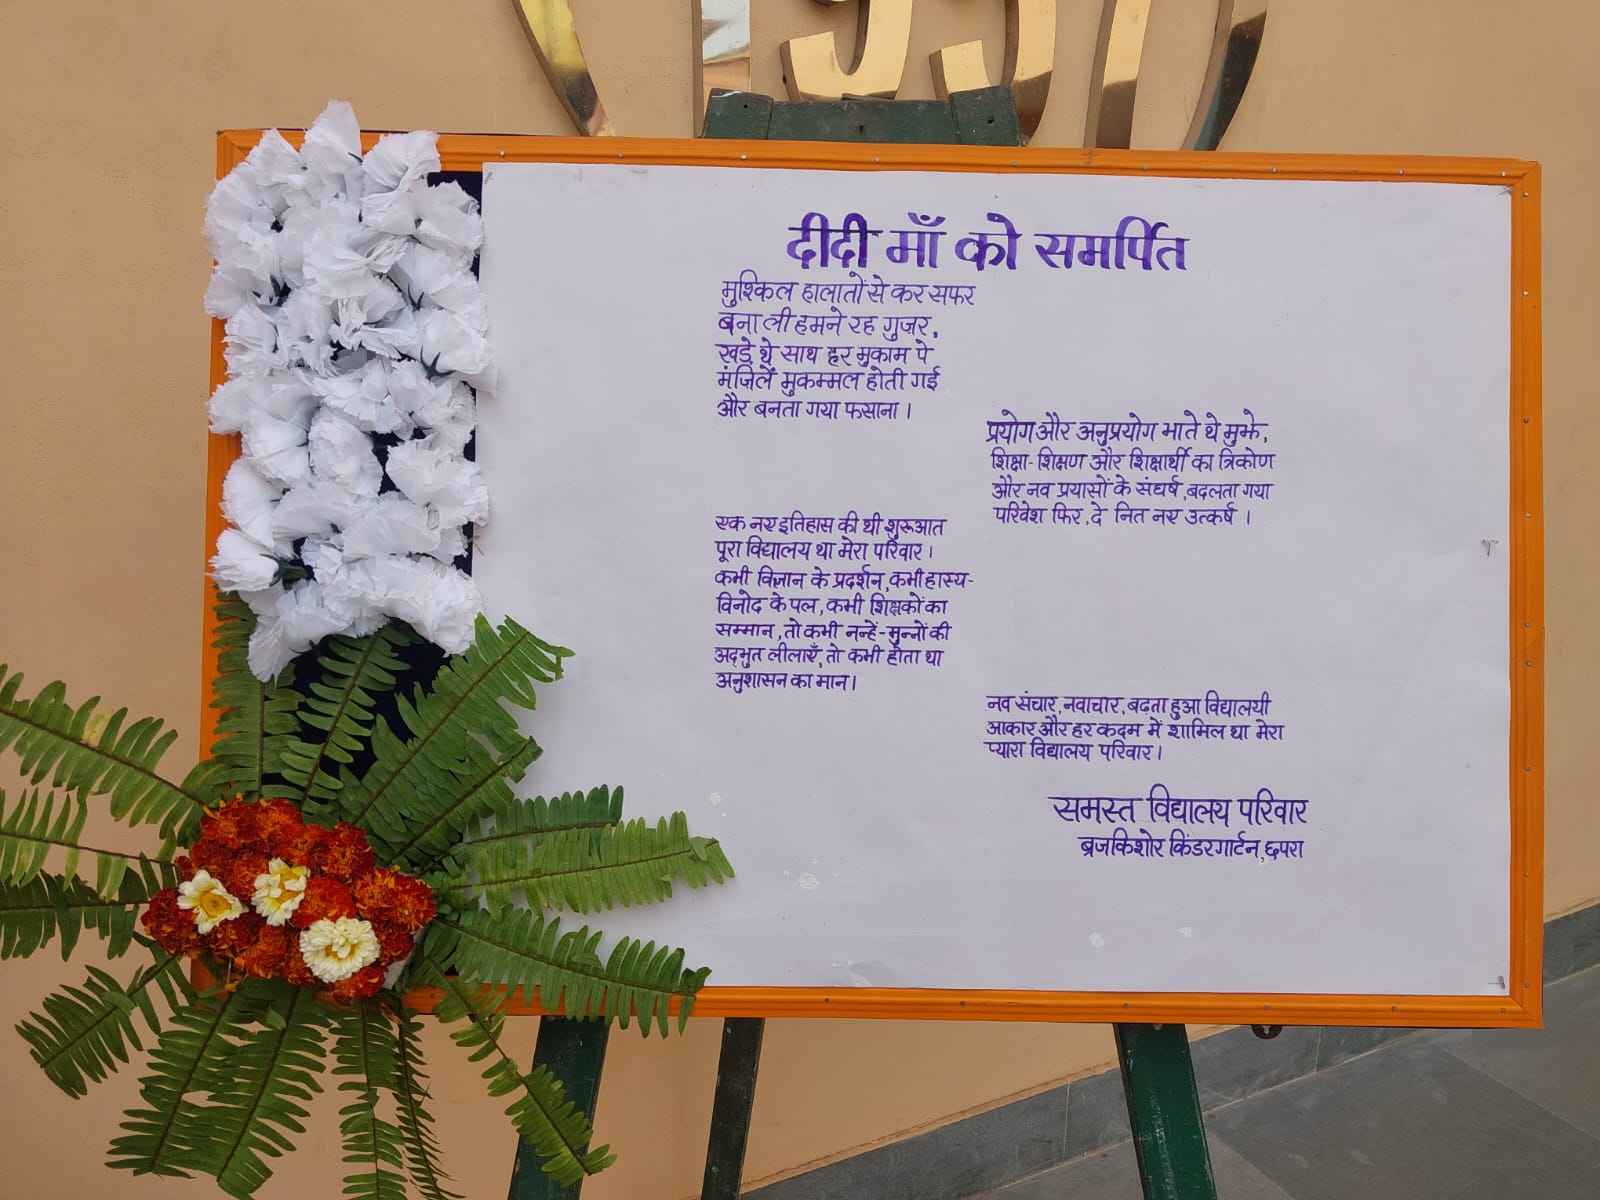 1997
दीदी माँ को समर्पित
मुश्किल हालातों से कर सफर
बना ली हमने रह गुजर,
खड़े थे साथ हर मुकाम पे
मंजिलें मुकम्मल होती गई
और बनता गया फसाना।
प्रयोग और अनुप्रयोग भाते थे मुझे,
शिक्षा-शिक्षण और शिक्षार्थी का त्रिकोण
और नव प्रयासों के संघर्ष, बदलता गया
परिवेश फिर, दे नित नए उत्कर्ष ।
एक नए इतिहास की थी शुरूआत
पूरा विद्यालय था मेरा परिवार।
कभी विज्ञान के प्रदर्शन, कभी हास्य-
विनोद के पल, कभी शिक्षकों का
सम्मान, तो कभी नन्हें-मुन्नों की
अद्भुत लीलाएँ, तो कभी होता था
अनुशासन का मान।
नव संचार, नवाचार, बढ़ता हुआ विद्यालयी
आकार और हर कदम में शामिल था मेरा
प्यारा विद्यालय परिवार।
समस्त विद्यालय परिवार
ब्रजकिशोर किंडरगार्टन, छपरा